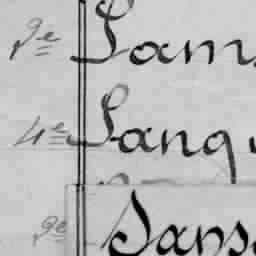 9e Lam
4e Lang
9e Sans